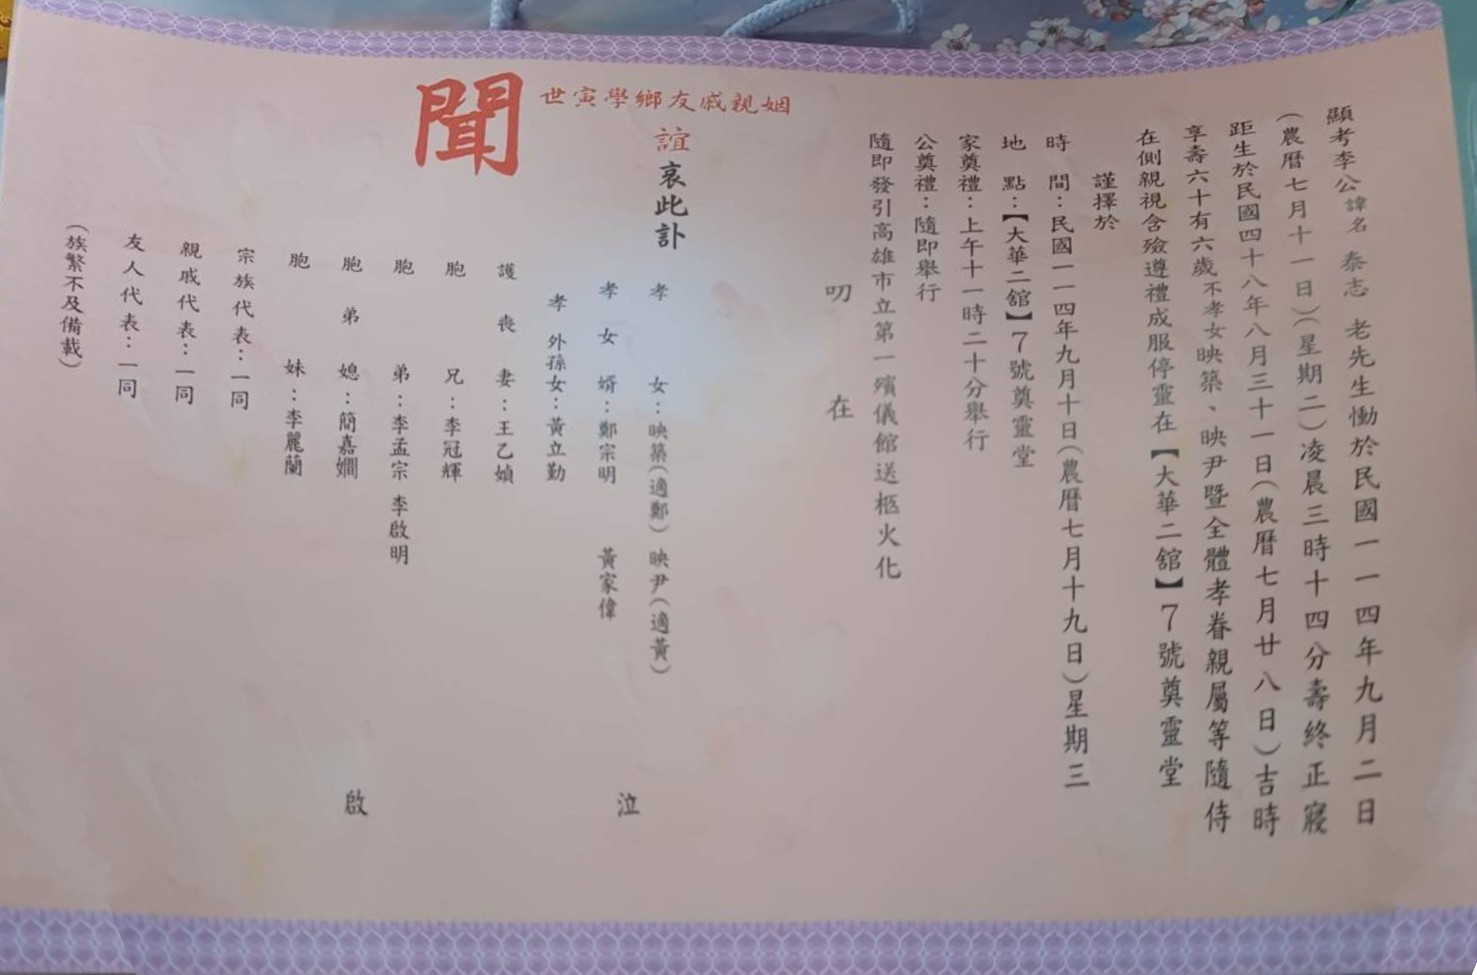 顯考李公諱名泰志老先生慟於民國一一四年九月二日
(農曆七月十一日)(星期二)凌晨三時十四分壽終正寢
距生於民國四十八年八月三十一日(農曆七月廿八日)吉時
享壽六十有六歲不孝女映築、映尹暨全體孝眷親屬等隨侍
在側親視含殮遵禮成服停靈在【大華二舘】7號奠靈堂
謹擇於
時間:民國一一四年九月十日(農曆七月十九日)星期三
地點:【大華二舘】7號奠靈堂
家奠禮:上午十一時二十分舉行
公奠禮:隨即舉行
隨即發引高雄市立第一殯儀館送柩火化
叨在
姻親戚友鄉學寅世
誼哀此訃
聞
孝女:映築(適鄭)映尹(適黃)
孝女婿:鄭宗明 黃家偉
孝外孫女:黃立勤
護喪妻:王乙媜
胞兄:李冠輝
胞弟:李孟宗 李啟明
胞弟媳:簡嘉嫺
胞妹:李麗蘭
宗族代表:一同
親戚代表:一同
友人代表:一同
(族繁不及備載)
泣
啟